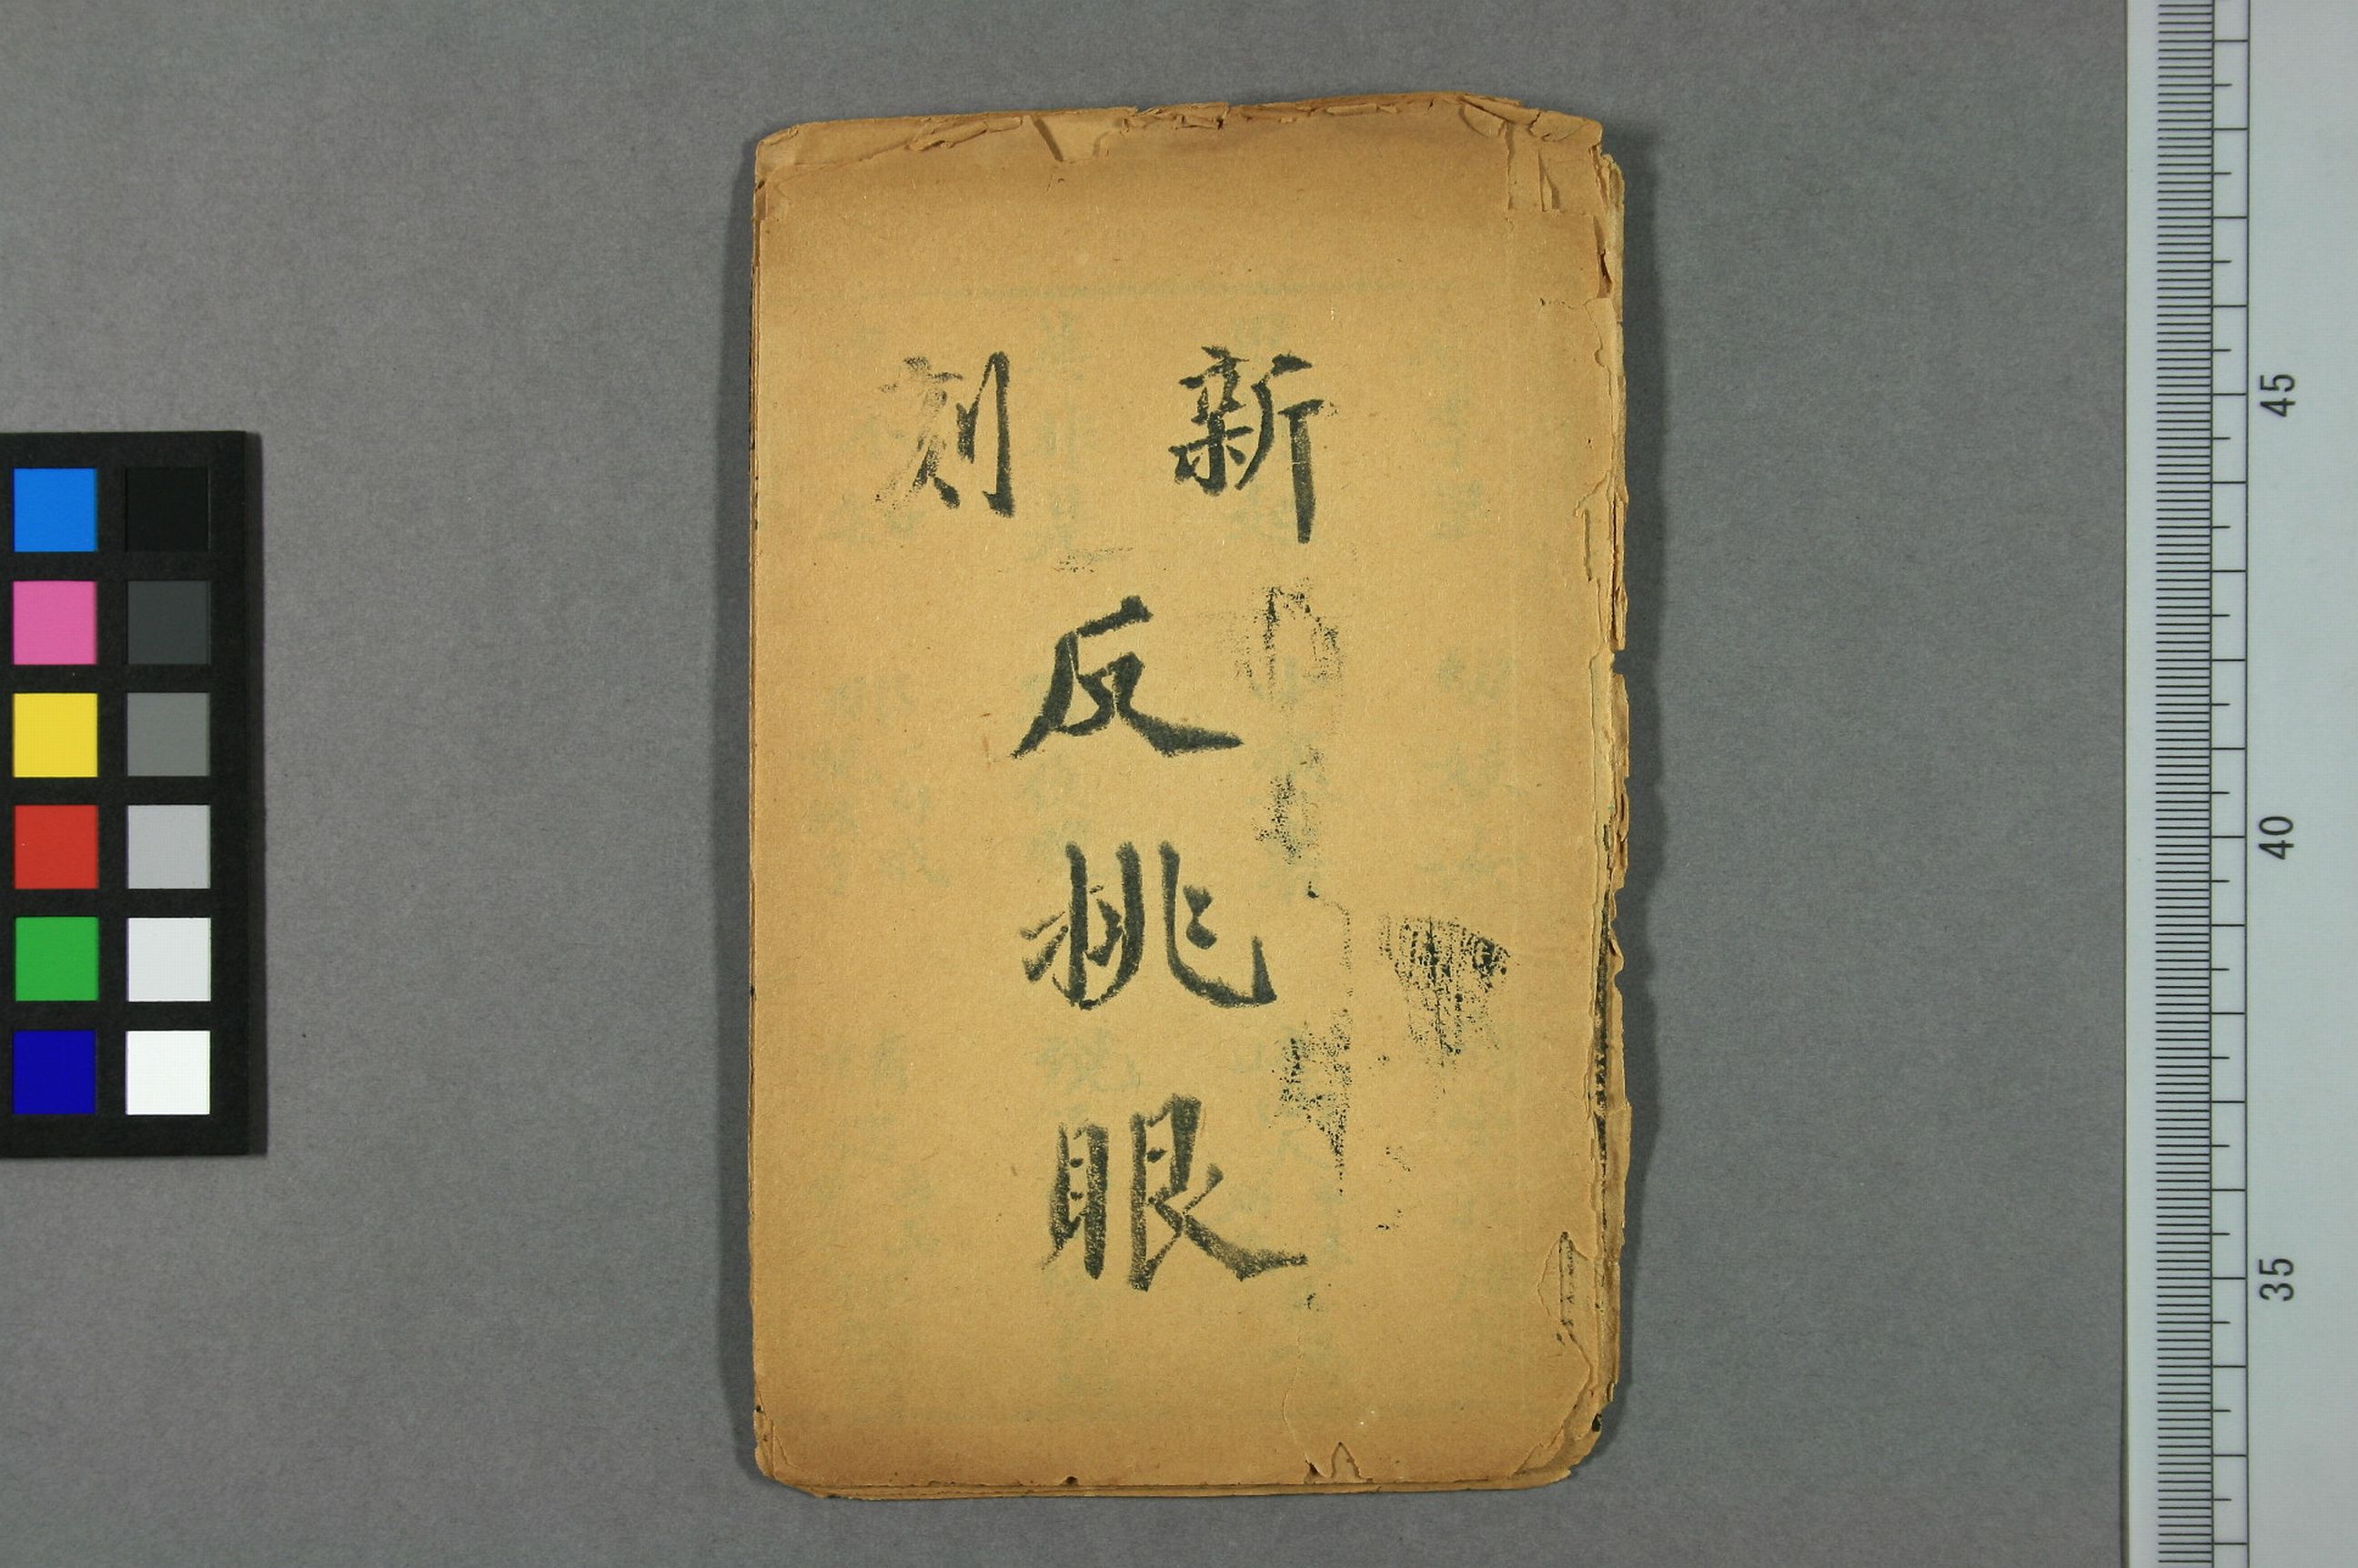 新刻
反挑眼
45
40
35